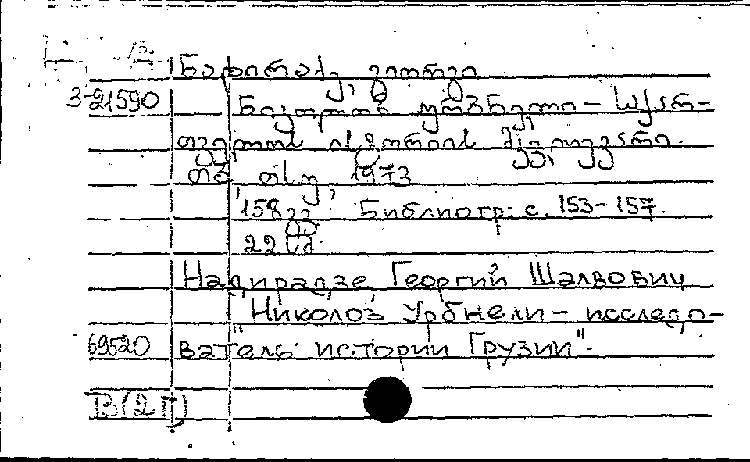 ნადირაძე, გიორგი
3-21590
ნიკოლოზ ურბნელი – საქარ-
თველოს ისტორიის მკვლევარი.
თბ., თსუ, 1973
158 გვ. Библиогр: с. 153-157.
22 სმ.
Надирадзе, Георгий Шалвович
"Николоз Урбнели – исследо-
69520 ватель истории Грузии".
В(2Г)